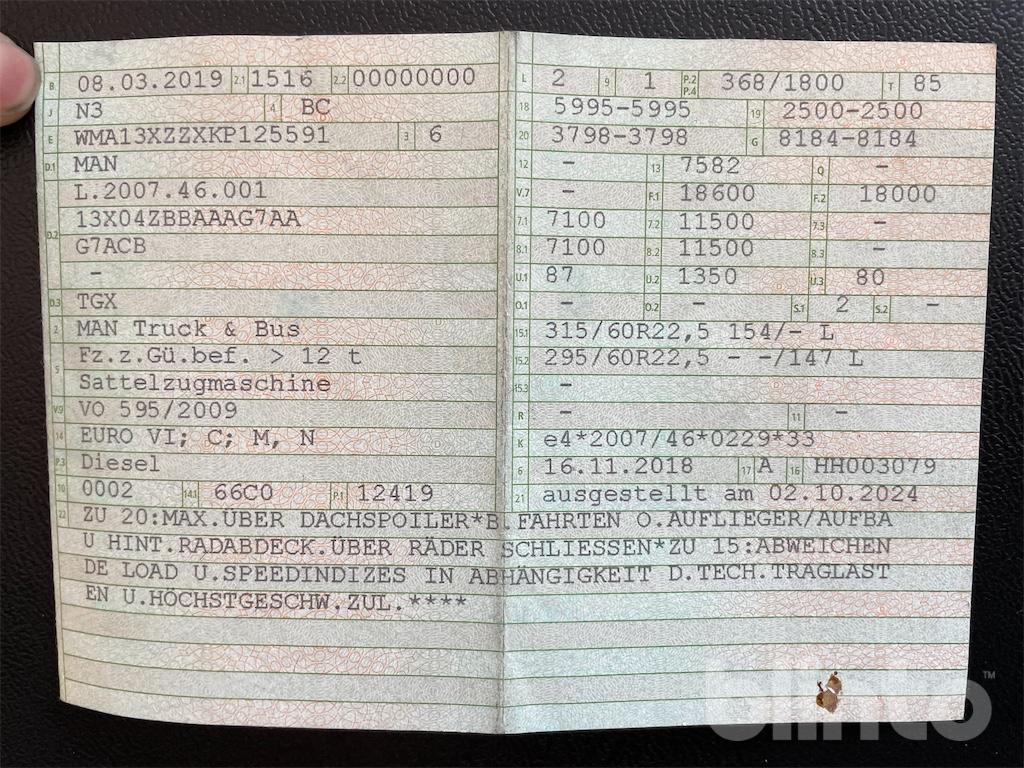 B 08.03.2019 2.1 1516 2.2 00000000
J N3 4 BC
E WMA13XZZXKP125591 3 6
D.1 MAN
L.2007.46.001
D.2 13X04ZBBAAAG7AA
G7ACB
-
D.3 TGX
2 MAN Truck & Bus
5 Fz.z.Gü.bef. > 12 t
Sattelzugmaschine
V.9 VO 595/2009
14 EURO VI; C; M, N
P.3 Diesel
10 0002 14.1 66C0 P.1 12419
L 2 9 1 P.2 P.4 368/1800 T 85
18 5995-5995 19 2500-2500
20 3798-3798 G 8184-8184
12 - 13 7582 Q -
V.7 - F.1 18600 F.2 18000
7.1 7100 7.2 11500 7.3 -
8.1 7100 8.2 11500 8.3 -
U.1 87 U.2 1350 U.3 80
O.1 - O.2 - S.1 2 S.2 -
15.1 315/60R22,5 154/- L
15.2 295/60R22,5 - -/147 L
15.3 -
R - 11 -
K e4*2007/46*0229*33
6 16.11.2018 17 A 16 HH003079
21 ausgestellt am 02.10.2024
22 ZU 20:MAX.ÜBER DACHSPOILER*B.FAHRTEN O.AUFLIEGER/AUFBA
U HINT.RADABDECK.ÜBER RÄDER SCHLIESSEN*ZU 15:ABWEICHEN
DE LOAD U.SPEEDINDIZES IN ABHÄNGIGKEIT D.TECH.TRAGLAST
EN U.HÖCHSTGESCHW.ZUL.****
blinto™